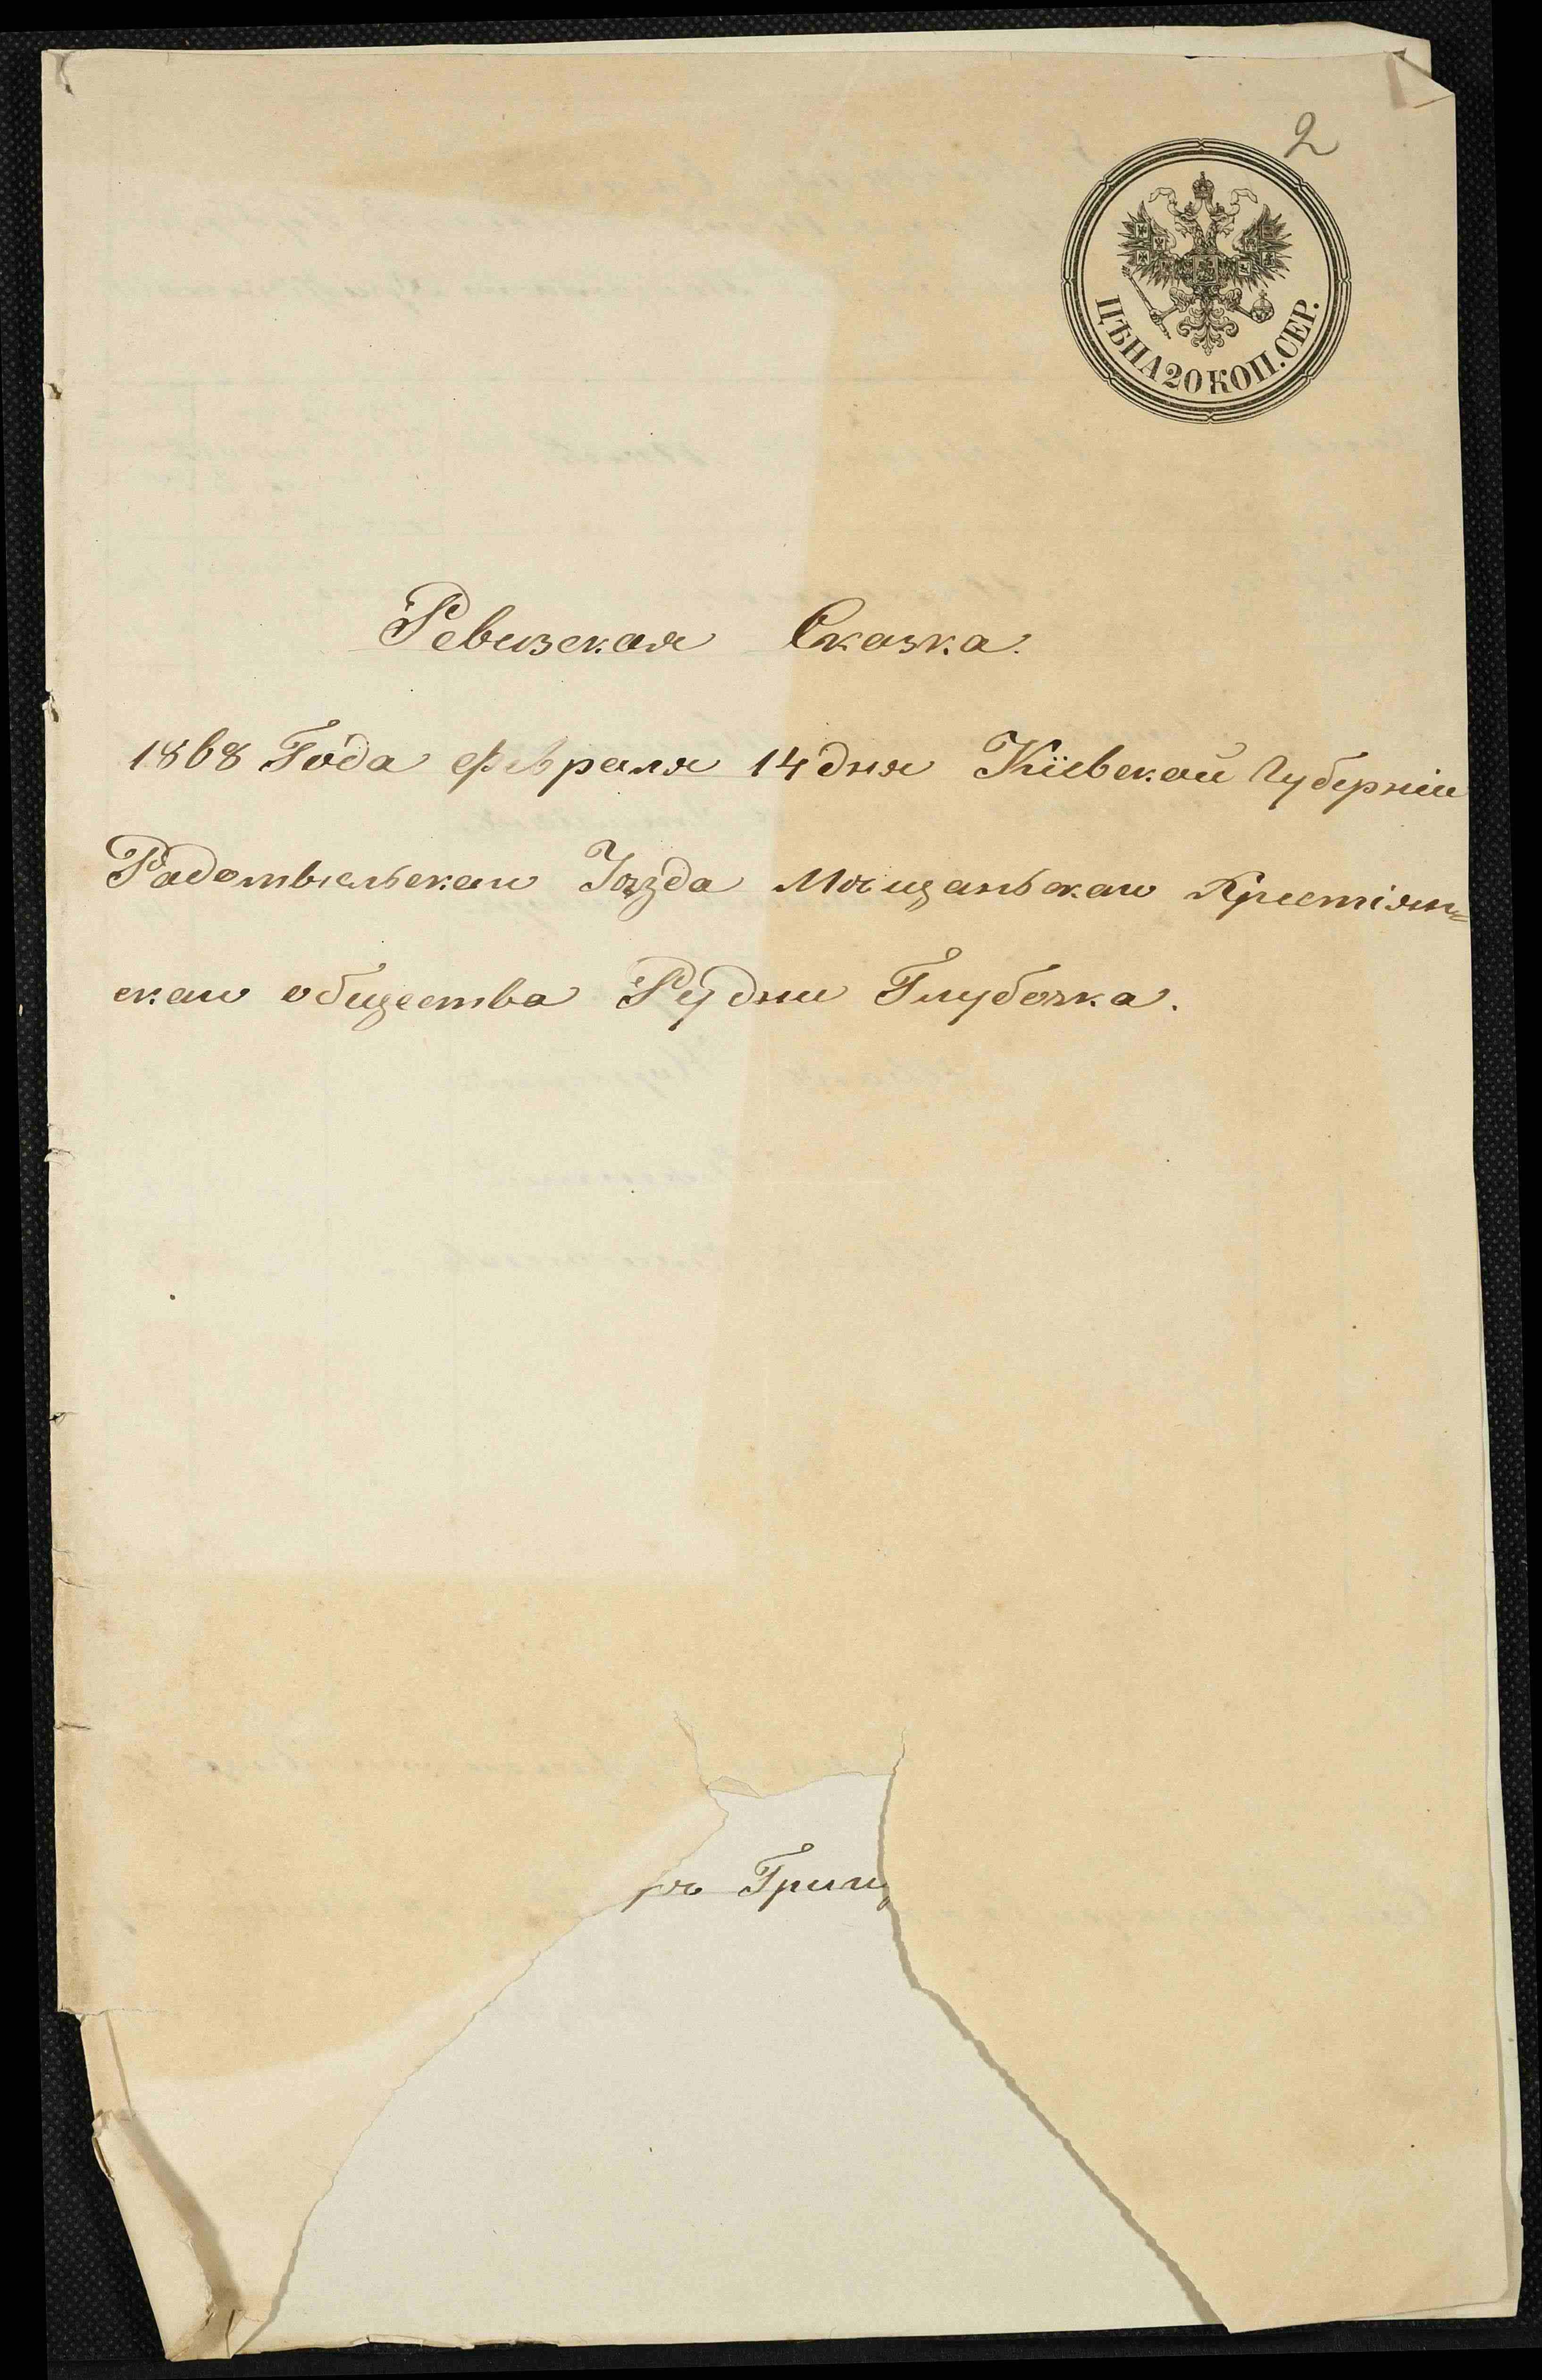 2
ЦѢНА 20 КОП. СЕР.
Ревизская Сказка.
1868 Года февраля 14 дня Кіевской Губерніи
Радомысльскаго Уѣзда Мѣщаньскаго Христіян=
скаго общества Рудни Глубочка.
ръ Гриц